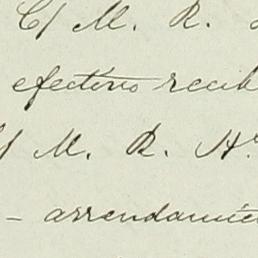 C/ M. R.
efectivo recib
C/ M. R. H.
- arrendamie